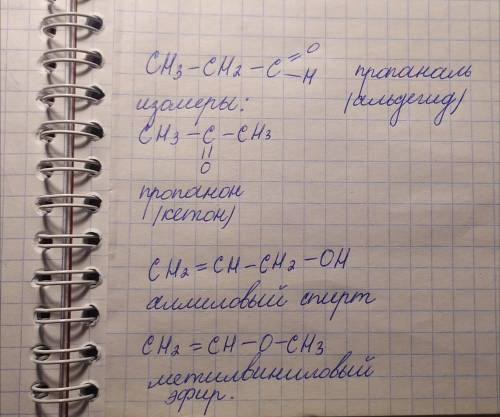 CH3 – CH2 – C =O –H пропаналь
изомеры: (альдегид)
CH3 – C – CH3
||
O
пропанон
(кетон)
CH2 = CH – CH2 – OH
аллиловый спирт
CH2 = CH – O – CH3
метилвиниловый
эфир.